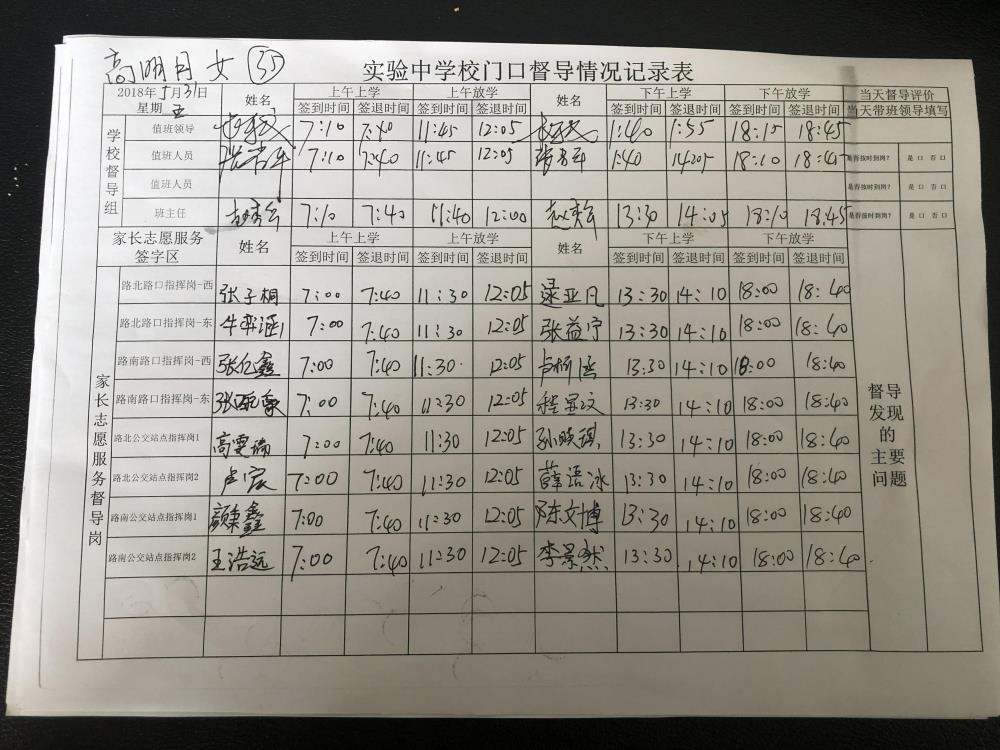 高明月 女 35
实验中学校门口督导情况记录表
2018年5月31日 姓名 上午上学 上午放学 姓名 下午上学 下午放学 当天督导评价
星期五 签到时间 签退时间 签到时间 签退时间 签到时间 签退时间 签到时间 签退时间 当天带班领导填写
学校督导组
值班领导 7:10 7:40 11:45 12:05 1:40 1:55 18:15 18:45
值班人员 7:10 7:40 11:45 12:05 1:40 18:10 是否按时到岗? 是 口 否 口
值班人员 是否按时到岗? 是 口 否 口
班主任 7:10 7:40 11:40 12:00 13:30 14:05 18:10 18:45 是否按时到岗? 是 口 否 口
家长志愿服务签字区 姓名 上午上学 上午放学 姓名 下午上学 下午放学
签到时间 签退时间 签到时间 签退时间 签到时间 签退时间 签到时间 签退时间
家长志愿服务督导岗
路北路口指挥岗-西 张子桐 7:00 7:40 11:30 12:05 逯亚凡 13:30 14:10 18:00 18:40
路北路口指挥岗-东 牛弈涵 7:00 7:40 11:30 12:05 张益宁 13:30 14:10 18:00 18:40
路南路口指挥岗-西 张亿鑫 7:00 7:40 11:30 12:05 13:30 14:10 18:00 18:40
路南路口指挥岗-东 7:00 7:40 11:30 12:05 程显文 13:30 14:10 18:00 18:40
路北公交站点指挥岗1 高雯瑞 7:00 7:40 11:30 12:05 孙晓琪 13:30 14:10 18:00 18:40
路北公交站点指挥岗2 卢宸 7:00 7:40 11:30 12:05 薛语冰 13:30 14:10 18:00 18:40
路南公交站点指挥岗1 7:00 7:40 11:30 12:05 陈文博 13:30 14:10 18:00 18:40
路南公交站点指挥岗2 王浩远 7:00 7:40 11:30 12:05 李景然 13:30 14:10 18:00 18:40
督导
发现
的
主要
问题